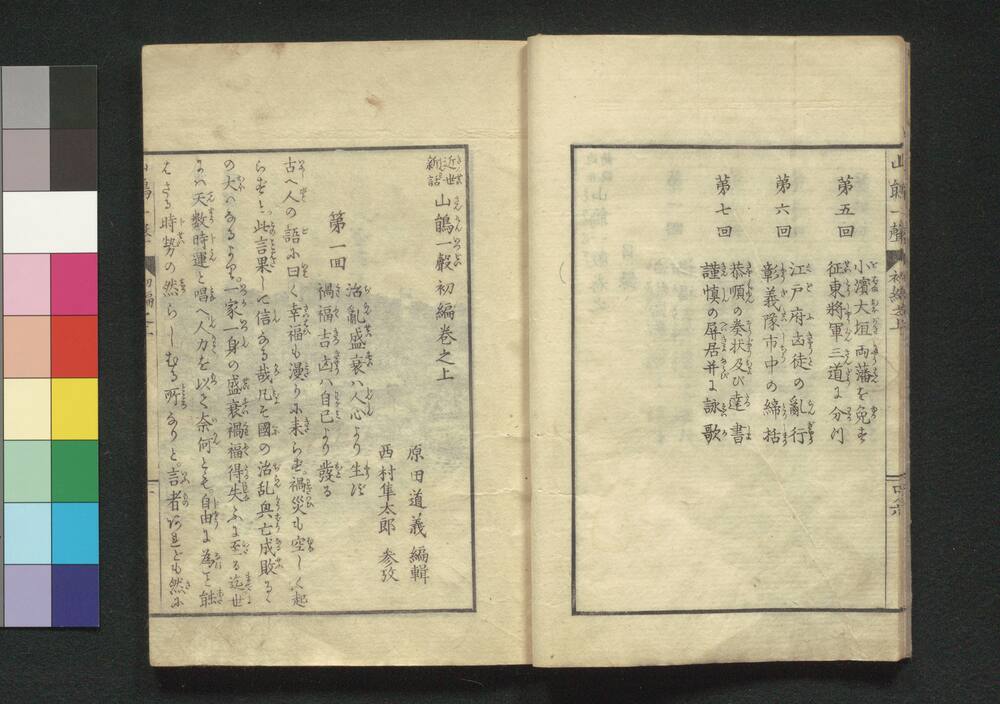 第五回
小濱大垣両藩を免す
征東將軍三道に分つ
第六回
江戸府凶徒の亂行
彰義隊市中の締括
第七回
恭順の奏状及び達書
謹慎の屏居并に詠歌
近世新話 山鵲一聲初編巻之上
原田道義 編輯
西村隼太郎 參攷
第一回
治亂盛衰ハ人心より生ず
禍福吉凶ハ自己より發る
古へ人の語に曰く幸福も漫りに来らず禍災も空しく起
らずと此言果して信なる哉凡そ國の治乱興亡成敗等
の大いなるより一家一身の盛衰禍福得失ふに至る迄世
に天數時運と唱へ人力を以て奈何とも自由に為こと能
はざる時勢の然らしむる所なりと言者あれども然に